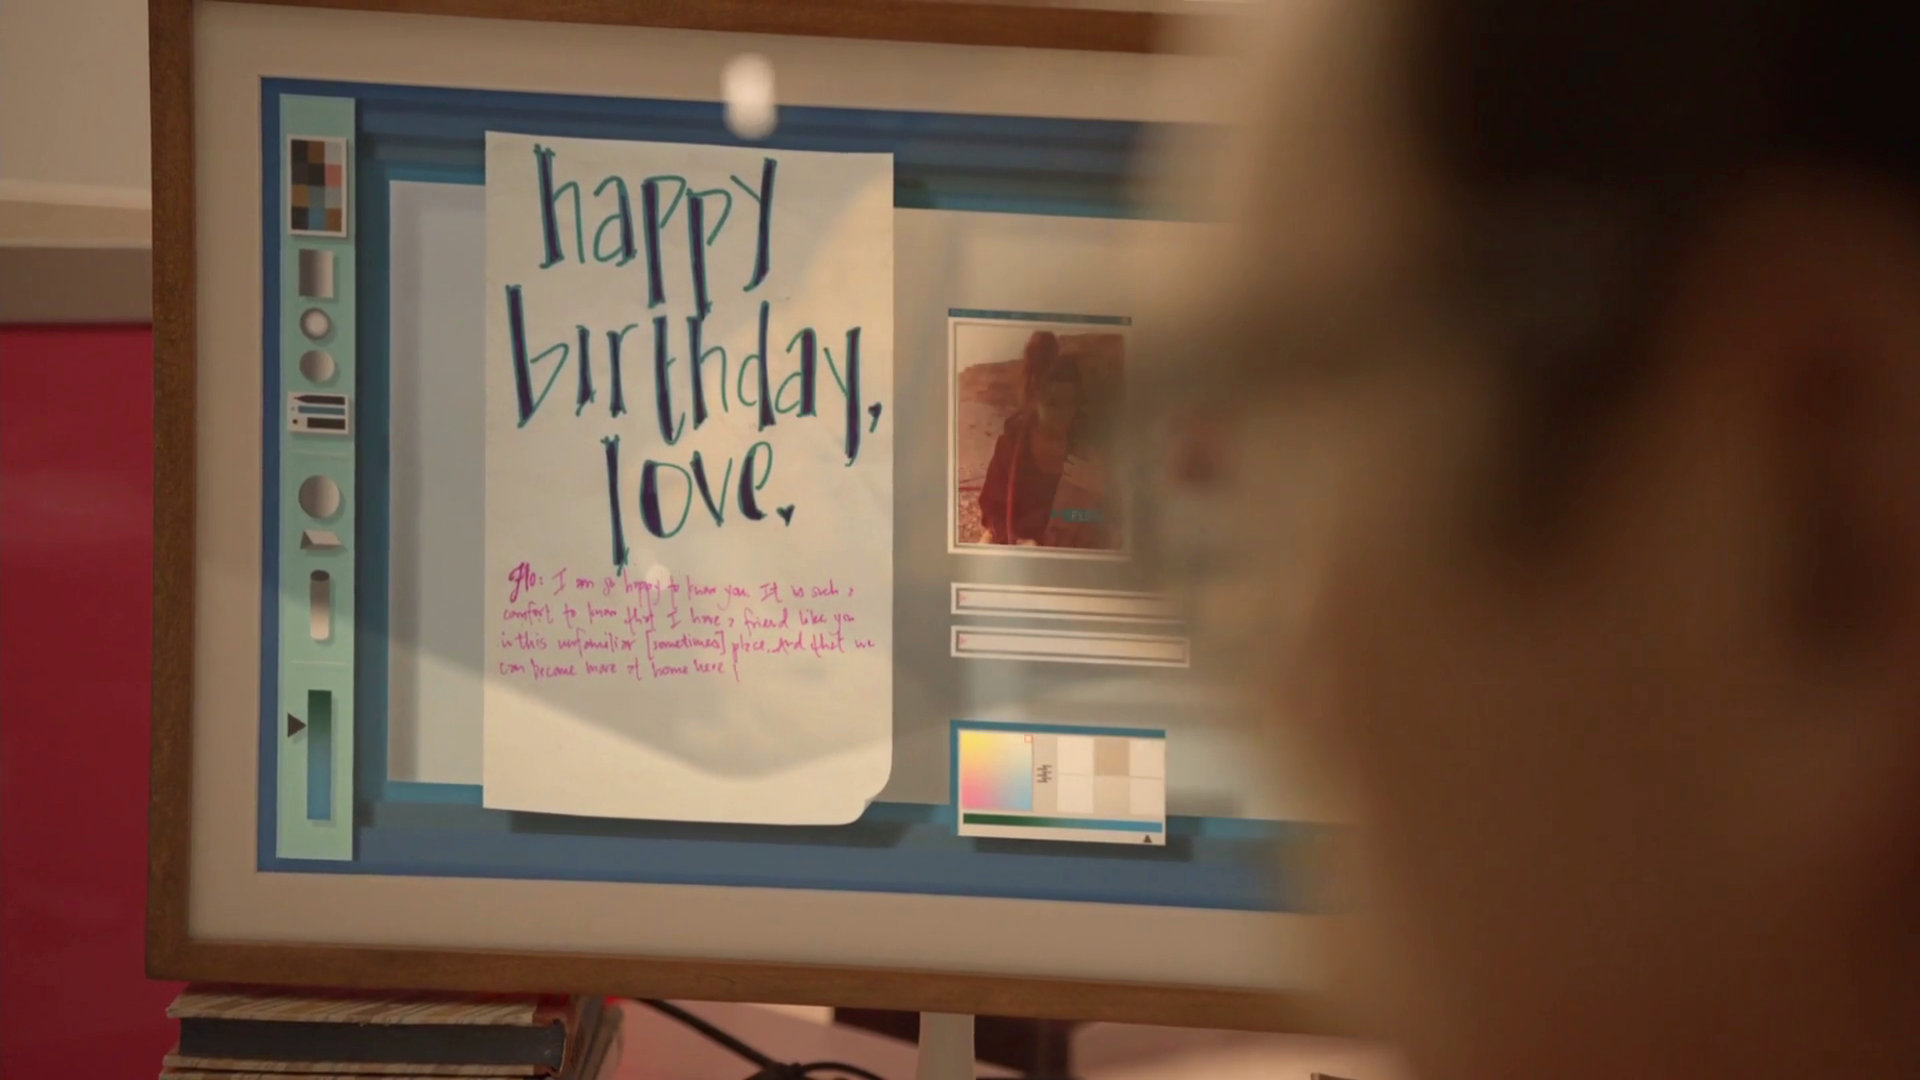 happy
birthday,
love.
Flo: I am so happy to know you. It is such a
comfort to know that I have a friend like you
in this unfamiliar [sometimes] place. And that we
can become more at home here!